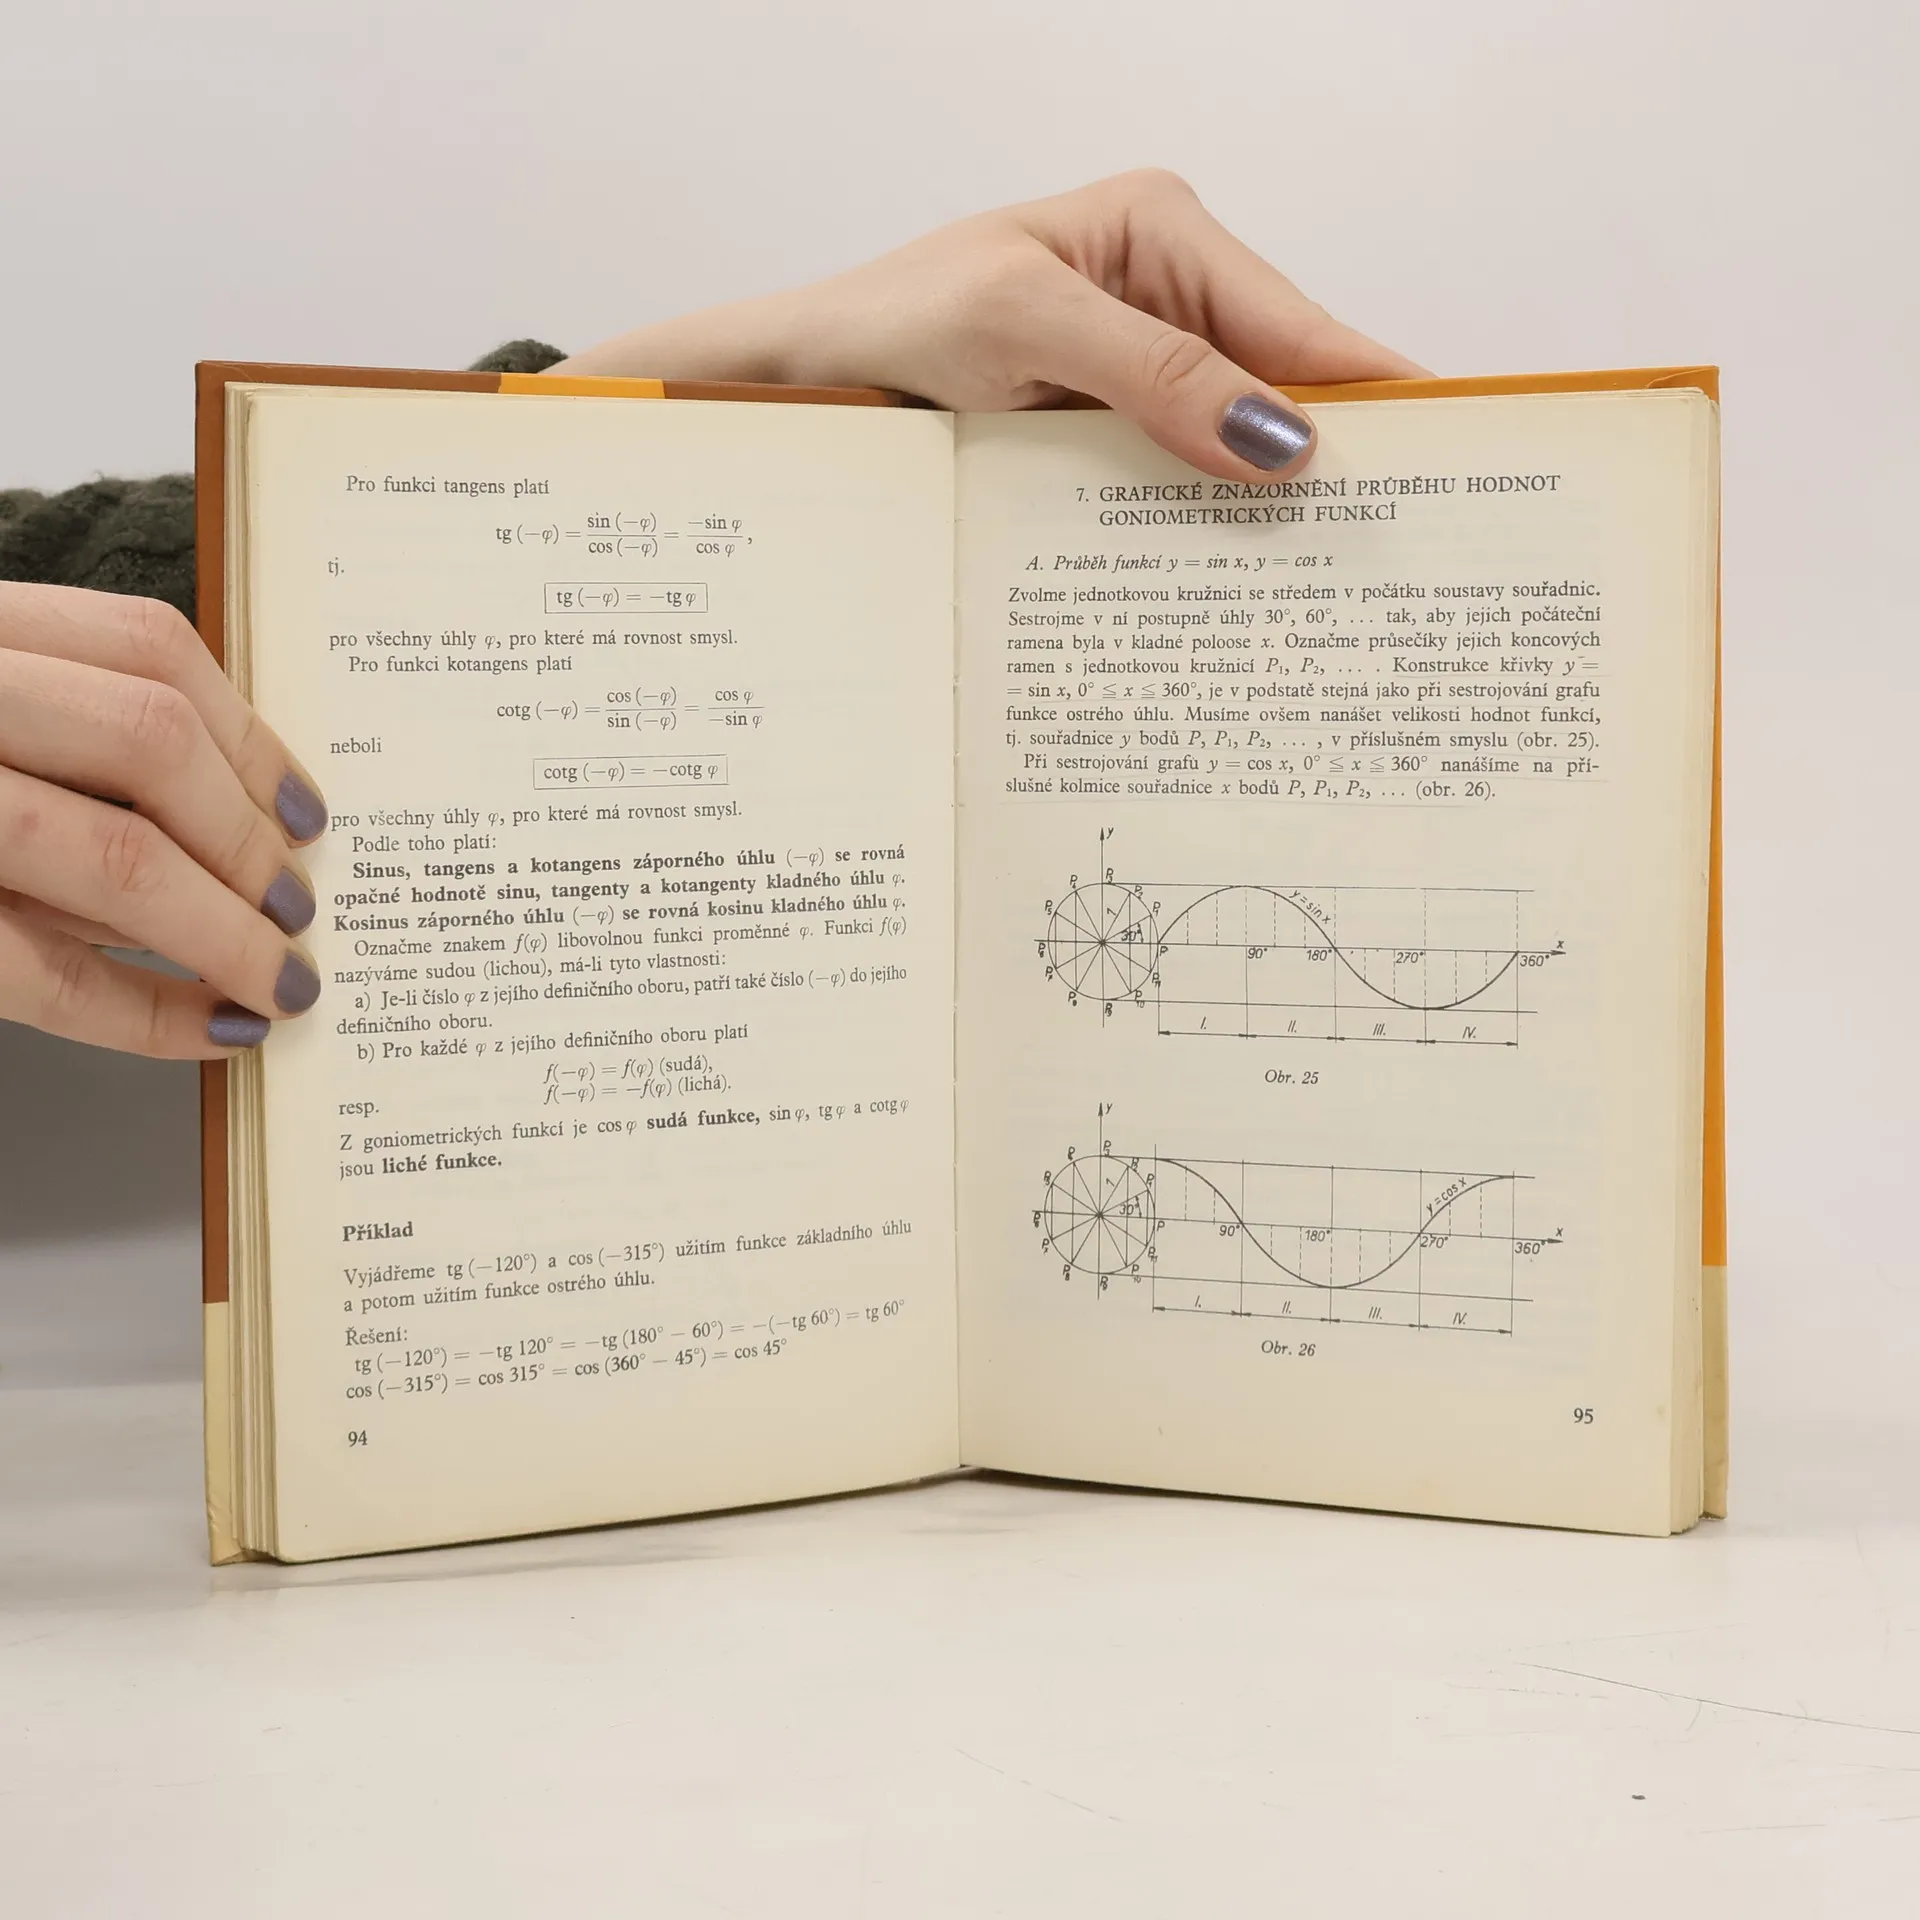 Pro funkci tangens platí
tg (—φ) = sin (—φ) / cos (—φ) = —sin φ / cos φ ,
tj.
tg (—φ) = —tg φ
pro všechny úhly φ, pro které má rovnost smysl.
Pro funkci kotangens platí
cotg (—φ) = cos (—φ) / sin (—φ) = cos φ / —sin φ
neboli
cotg (—φ) = —cotg φ
pro všechny úhly φ, pro které má rovnost smysl.
Podle toho platí:
Sinus, tangens a kotangens záporného úhlu (—φ) se rovná
opačné hodnotě sinu, tangenty a kotangenty kladného úhlu φ.
Kosinus záporného úhlu (—φ) se rovná kosinu kladného úhlu φ.
Označme znakem f(φ) libovolnou funkci proměnné φ. Funkci f(φ)
nazýváme sudou (lichou), má-li tyto vlastnosti:
a) Je-li číslo φ z jejího definičního oboru, patří také číslo (—φ) do jejího
definičního oboru.
b) Pro každé φ z jejího definičního oboru platí
f(—φ) = f(φ) (sudá),
resp.
f(—φ) = —f(φ) (lichá).
Z goniometrických funkcí je cos φ sudá funkce, sin φ, tg φ a cotg φ
jsou liché funkce.
Příklad
Vyjádřeme tg (—120°) a cos (—315°) užitím funkce základního úhlu
a potom užitím funkce ostrého úhlu.
Řešení:
tg (—120°) = —tg 120° = —tg (180° — 60°) = —(—tg 60°) = tg 60°
cos (—315°) = cos 315° = cos (360° — 45°) = cos 45°
94
7. GRAFICKÉ ZNÁZORNĚNÍ PRŮBĚHU HODNOT
GONIOMETRICKÝCH FUNKCÍ
A. Průběh funkcí y = sin x, y = cos x
Zvolme jednotkovou kružnici se středem v počátku soustavy souřadnic.
Sestrojme v ní postupně úhly 30°, 60°, ... tak, aby jejich počáteční
ramena byla v kladné poloose x. Označme průsečíky jejich koncových
ramen s jednotkovou kružnicí P₁, P₂, ... . Konstrukce křivky y =
= sin x, 0° ≦ x ≦ 360°, je v podstatě stejná jako při sestrojování grafu
funkce ostrého úhlu. Musíme ovšem nanášet velikosti hodnot funkcí,
tj. souřadnice y bodů P, P₁, P₂, ... , v příslušném smyslu (obr. 25).
Při sestrojování grafu y = cos x, 0° ≦ x ≦ 360° nanášíme na pří-
slušné kolmice souřadnice x bodů P, P₁, P₂, ... (obr. 26).
y
P₄ P₃ P₂
P₅ 1 P₁ y = sin x
P₆ 30° P 90° 180° 270° 360° x
P₇ P₁₁
P₈ P₉ P₁₀
I. II. III. IV.
Obr. 25
y
P₃
1 P₁ y = cos x
30° P 90° 180° 270° 360° x
P₁₁
P₈ P₉ P₁₀
I. II. III. IV.
Obr. 26
95